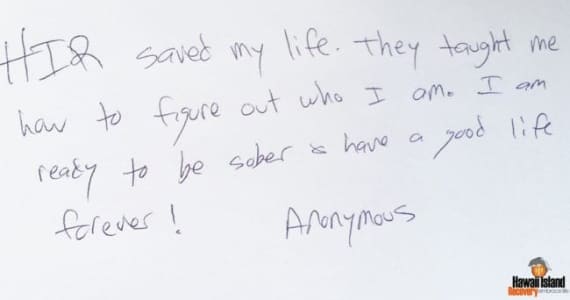 HIR saved my life. They taught me
how to figure out who I am. I am
ready to be sober & have a good life
forever!
Anonymous
Hawaii Island
Recovery